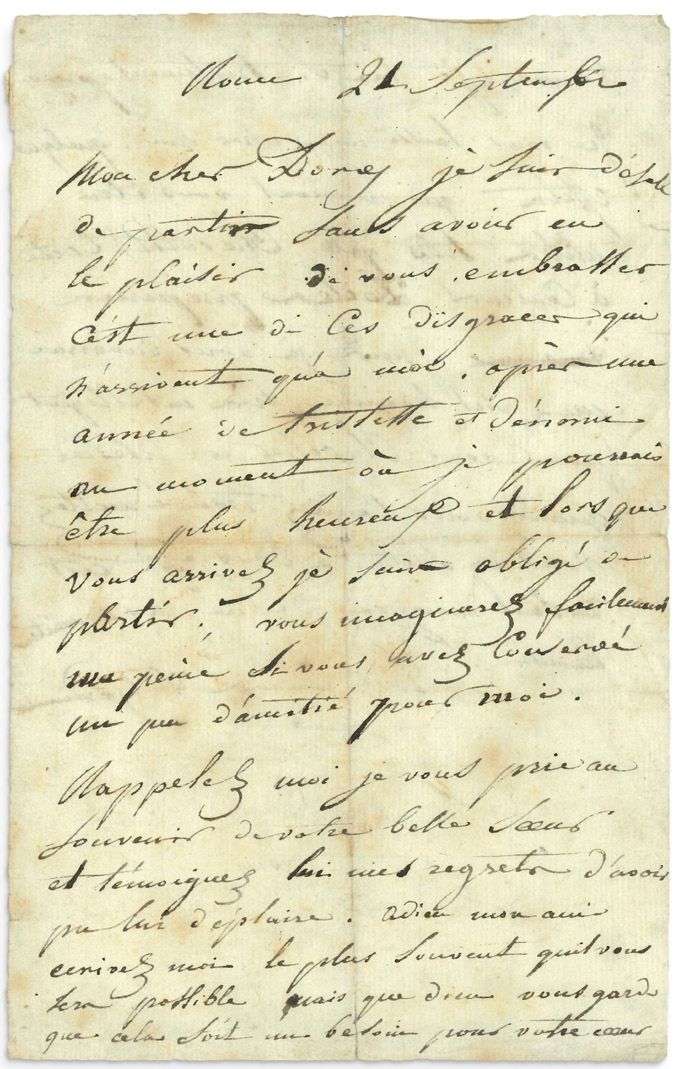 Rome 21 Septembre
Mon cher Dorcy je suis désolé
de partir sans avoir eu
le plaisir de vous embrasser
c'est une de ces disgraces qui
n'arrivent qu'a moi. après une
année de tristesse et d'énnui
au moment où je pourrais
être plus heureux et lors que
vous arrivez je suis obligé de
partir. vous imaginerez facilement
ma peine si vous avez conservé
un peu d'amitié pour moi.
Rappelez moi je vous prie au
souvenir de votre belle sœur
et témoignez lui mes regrets d'avoir
pu lui déplaire. adieu mon ami
ecrivez moi le plus souvent qu'il vous
sera possible mais que dieu vous garde
que cela soit un besoin pour votre cœur